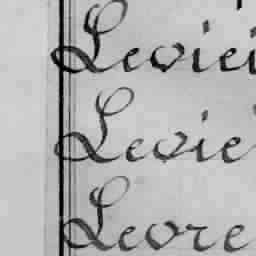 Leviei
Levie
Levre